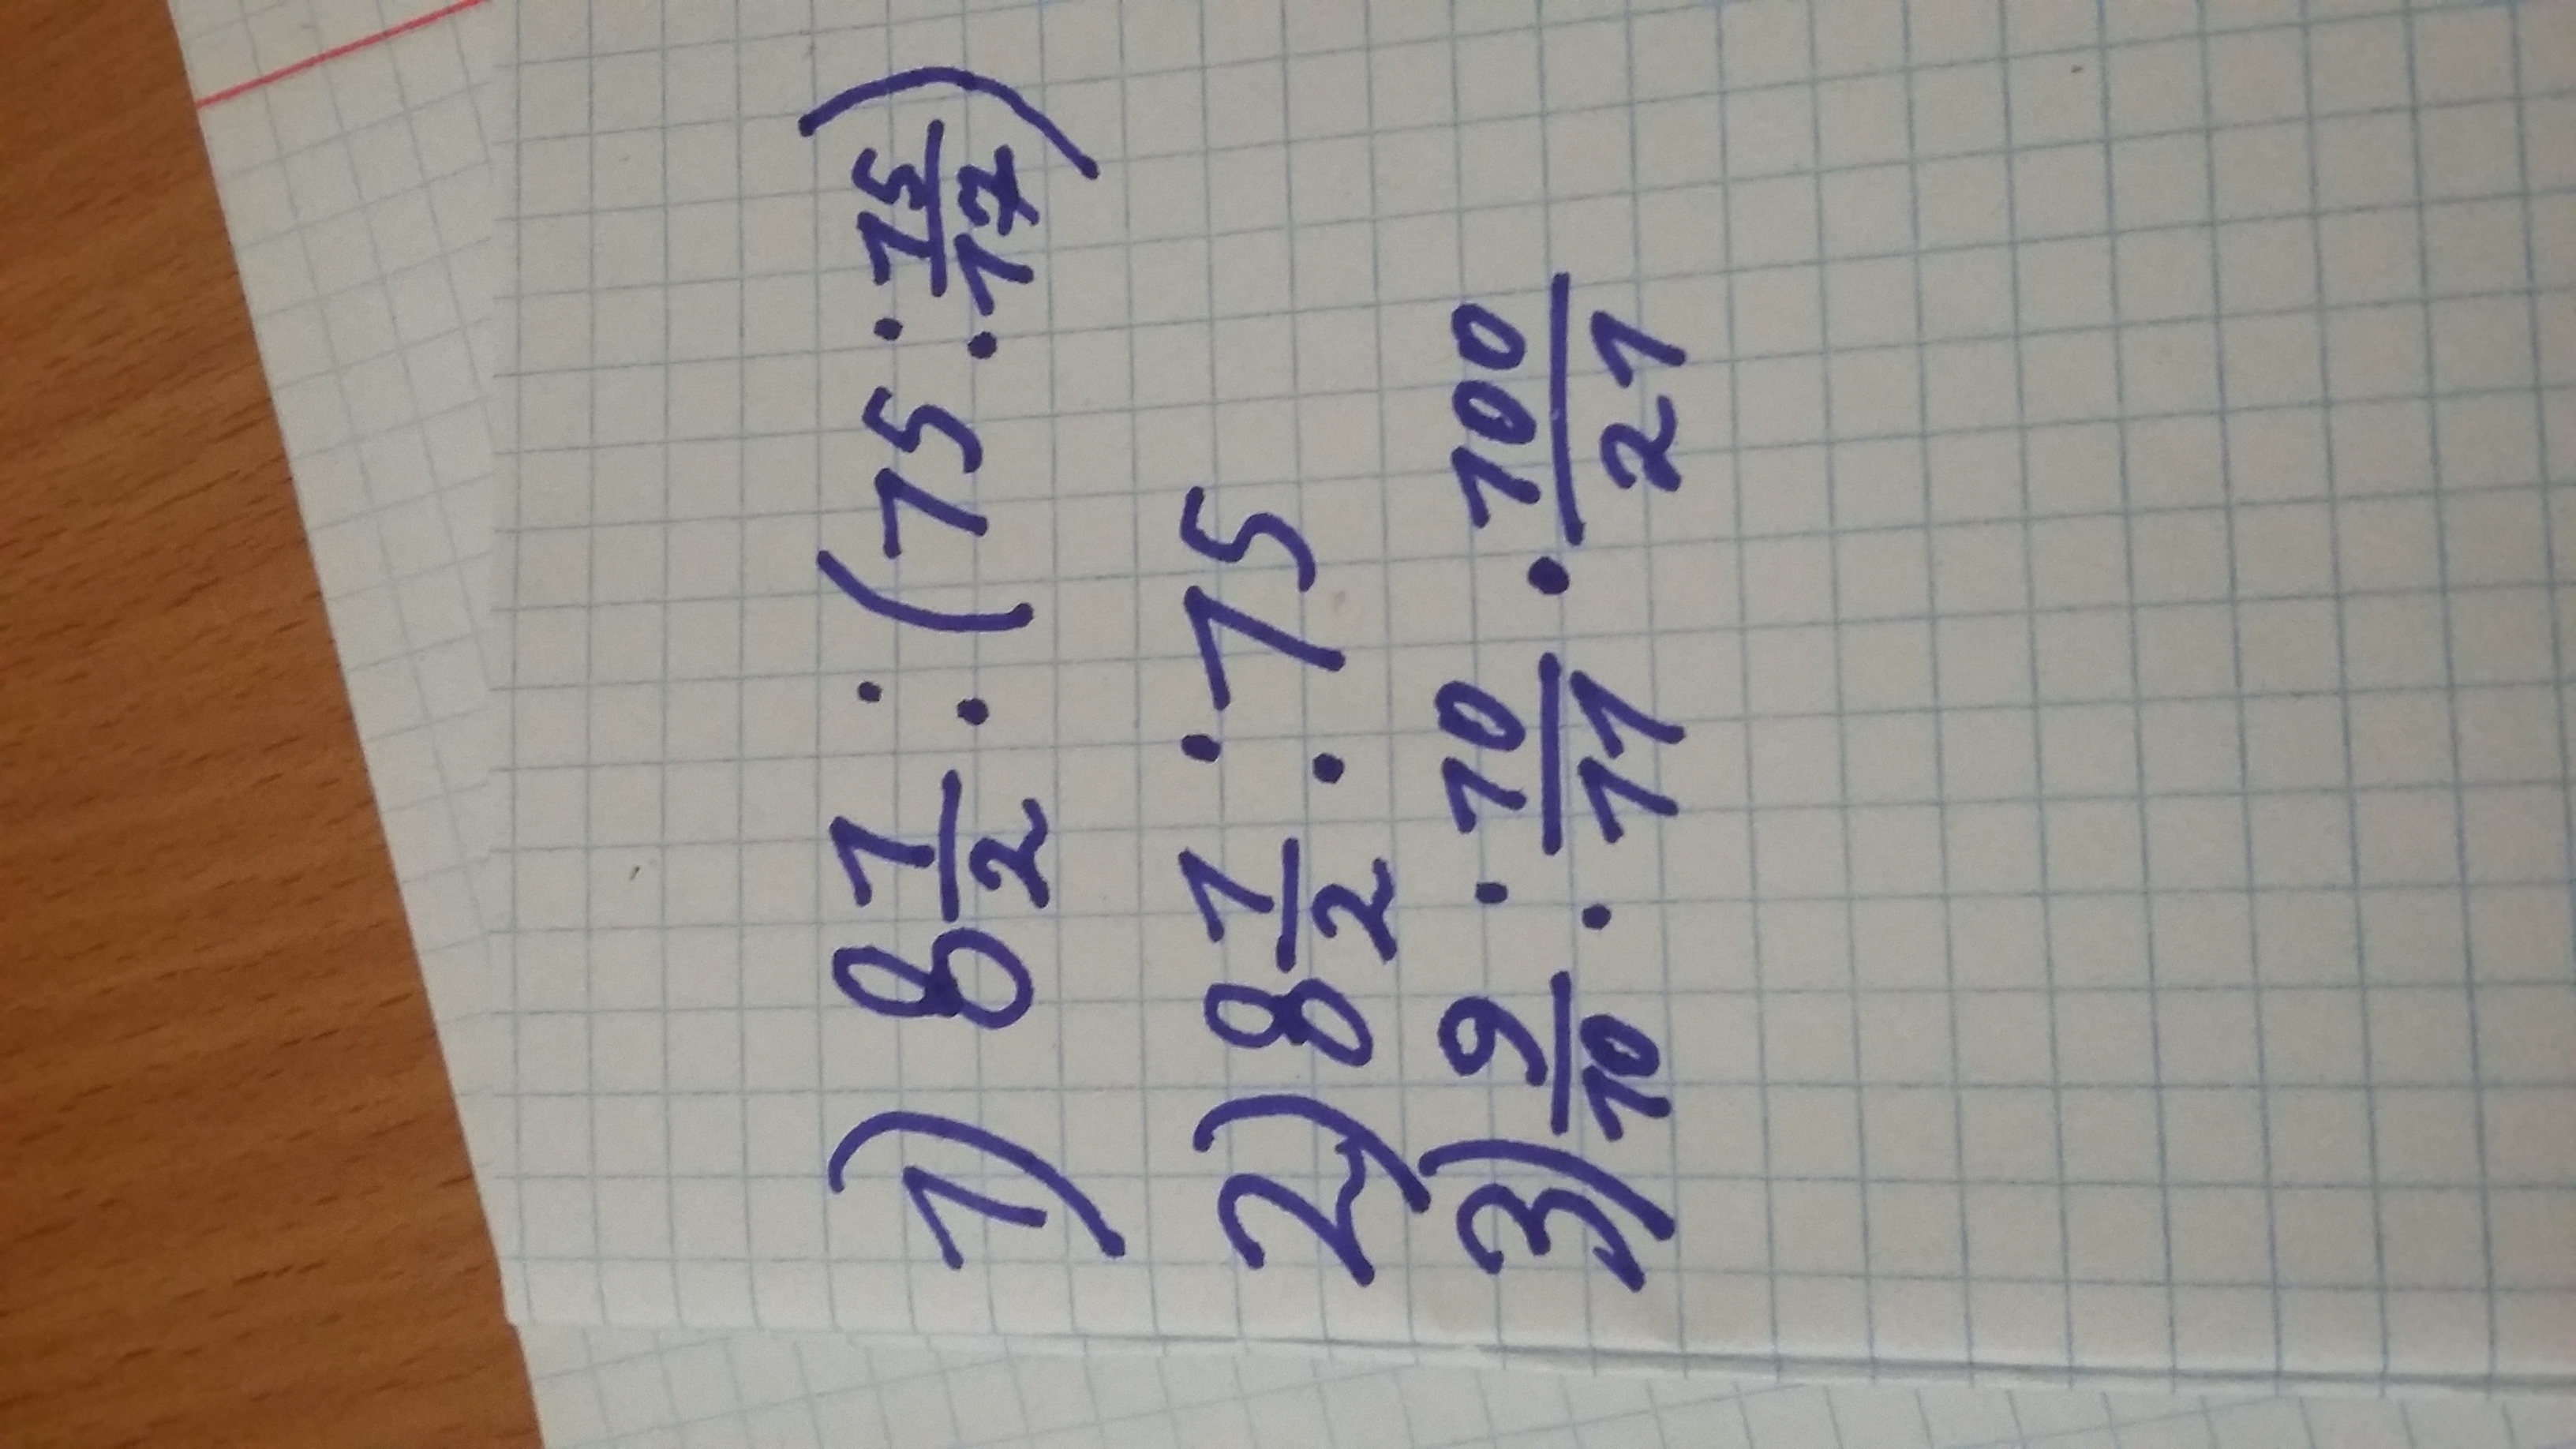 1) 8 1/2 : (15 : 15/17)
2) 8 1/2 : 15
3) 9/10 : 10/11 · 100/21